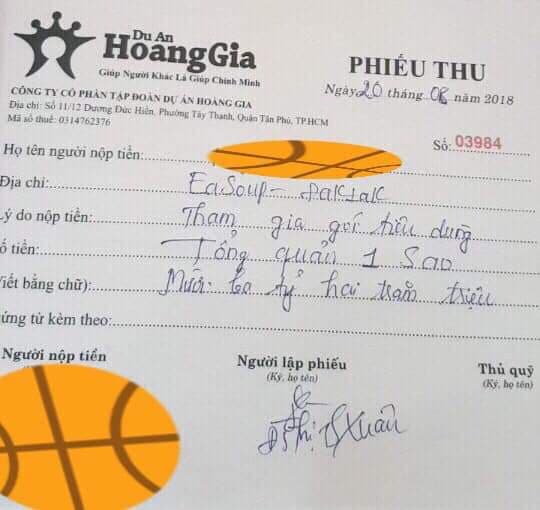 Du Án
HoangGia
Giúp Người Khác Là Giúp Chính Mình
CÔNG TY CỔ PHẦN TẬP ĐOÀN DỰ ÁN HOÀNG GIA
Địa chỉ: Số 11/12 Dương Đức Hiền, Phường Tây Thạnh, Quận Tân Phú, TP.HCM
Mã số thuế: 0314762376
PHIẾU THU
Ngày 20 tháng 08 năm 2018
Số: 03984
Họ tên người nộp tiền:
Địa chỉ: EaSoup - ĐakLak
Lý do nộp tiền: Tham gia gói tiêu dùng
ố tiền: Tổng quản 1 Sao
Viết bằng chữ): Mười ba tỷ hai trăm triệu
ứng từ kèm theo:
Người nộp tiền
Người lập phiếu
(Ký, họ tên)
Thủ quỹ
(Ký, họ tên)